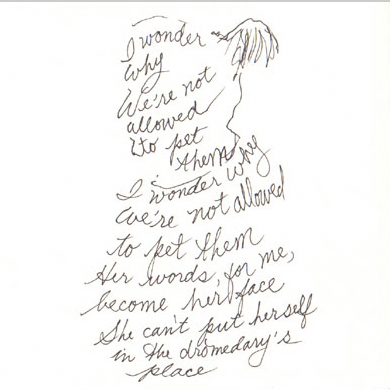 I wonder
why
We're not
allowed
to pet
them
I wonder why
we're not allowed
to pet them
Her words, for me,
become her face
She can't put herself
in the dromedary's
place